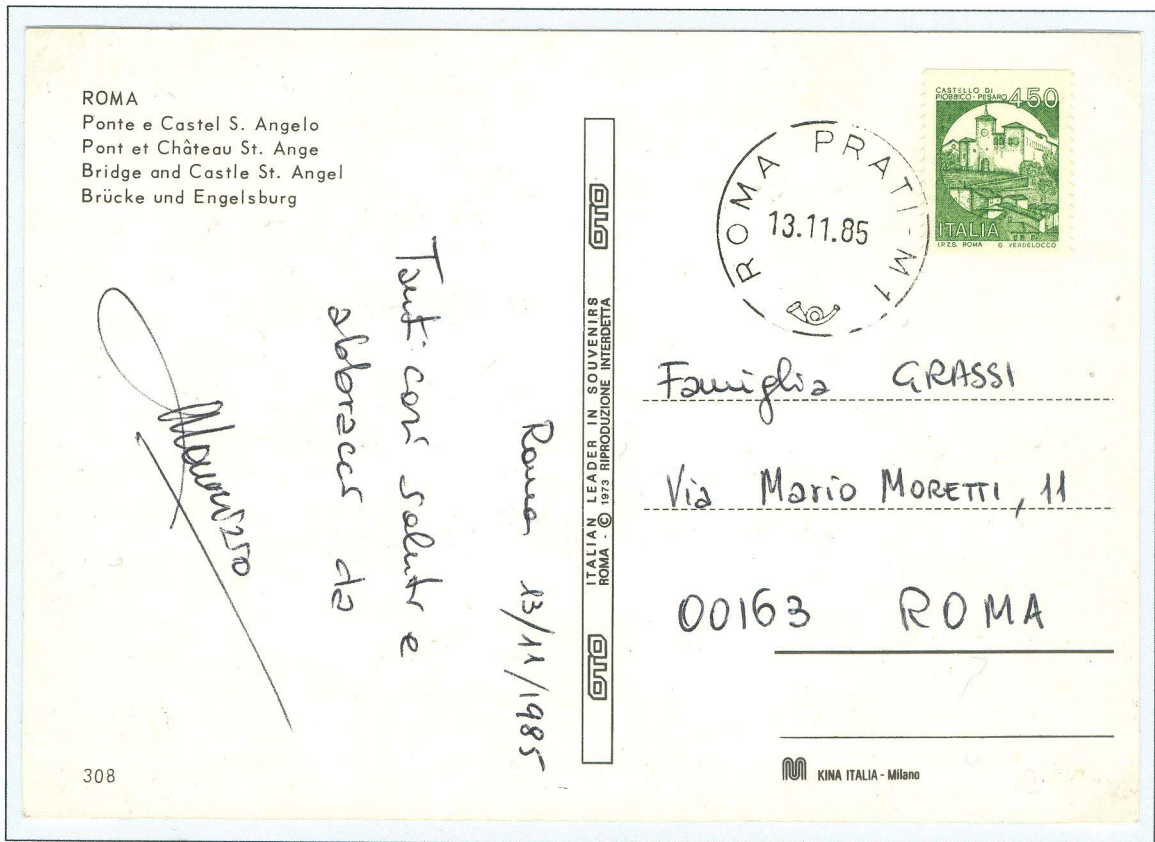 ROMA
Ponte e Castel S. Angelo
Pont et Château St. Ange
Bridge and Castle St. Angel
Brücke und Engelsburg
Roma 13/11/1985
Tanti cari saluti e
abbracci da
Maurizio
308
OTO
ITALIAN LEADER IN SOUVENIRS
ROMA - © 1973 RIPRODUZIONE INTERDETTA
OTO
CASTELLO DI
PIOBBICO - PESARO 450
ITALIA
I.P.Z.S. ROMA G. VERDELOCCO
ROMA PRATI - M1
13.11.85
Famiglia GRASSI
Via Mario MORETTI, 11
00163 ROMA
KINA ITALIA - Milano